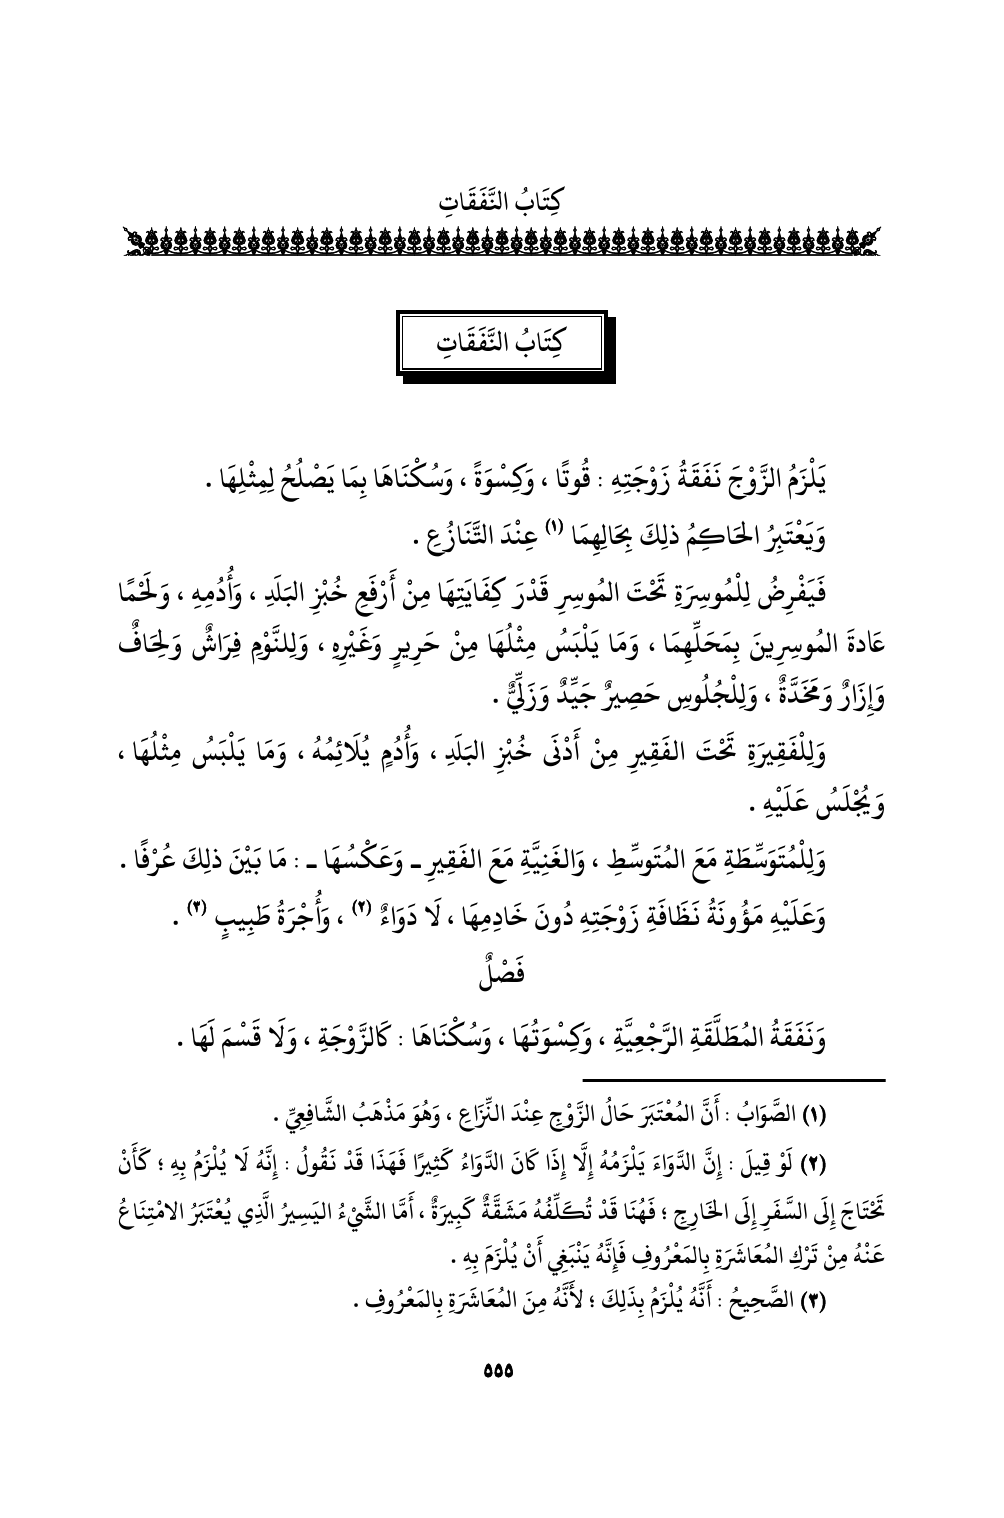 كِتَابُ النَّفَقَاتِ
كِتَابُ النَّفَقَاتِ
يَلْزَمُ الزَّوْجَ نَفَقَةُ زَوْجَتِهِ : قُوتًا ، وَكِسْوَةً ، وَسُكْنَاهَا بِمَا يَصْلُحُ لِمِثْلِهَا .
وَيَعْتَبِرُ الحَاكِمُ ذلِكَ بِحَالِهِمَا (١) عِنْدَ التَّنَازُعِ .
فَيَفْرِضُ لِلْمُوسِرَةِ تَحْتَ المُوسِرِ قَدْرَ كِفَايَتِهَا مِنْ أَرْفَعِ خُبْزِ البَلَدِ ، وَأُدُمِهِ ، وَلَحْمًا
عَادةَ المُوسِرِينَ بِمَحَلِّهِمَا ، وَمَا يَلْبَسُ مِثْلُهَا مِنْ حَرِيرٍ وَغَيْرِهِ ، وَلِلنَّوْمِ فِرَاشٌ وَلِحَافٌ
وَإِزَارٌ وَمَخَدَّةٌ ، وَلِلْجُلُوسِ حَصِيرٌ جَيِّدٌ وَزَلِّيٌّ .
وَلِلْفَقِيرَةِ تَحْتَ الفَقِيرِ مِنْ أَدْنَى خُبْزِ البَلَدِ ، وَأُدُمٍ يُلَائِمُهُ ، وَمَا يَلْبَسُ مِثْلُهَا ،
وَيُجْلَسُ عَلَيْهِ .
وَلِلْمُتَوَسِّطَةِ مَعَ المُتَوسِّطِ ، وَالغَنِيَّةِ مَعَ الفَقِيرِ ـ وَعَكْسُهَا ـ : مَا بَيْنَ ذلِكَ عُرْفًا .
وَعَلَيْهِ مَؤُونَةُ نَظَافَةِ زَوْجَتِهِ دُونَ خَادِمِهَا ، لَا دَوَاءٌ (٢) ، وَأُجْرَةُ طَبِيبٍ (٣) .
فَصْلٌ
وَنَفَقَةُ المُطَلَّقَةِ الرَّجْعِيَّةِ ، وَكِسْوَتُهَا ، وَسُكْنَاهَا : كَالزَّوْجَةِ ، وَلَا قَسْمَ لَهَا .
(١) الصَّوَابُ : أَنَّ المُعْتَبَرَ حَالُ الزَّوْجِ عِنْدَ النِّزَاعِ ، وَهُوَ مَذْهَبُ الشَّافِعِيِّ .
(٢) لَوْ قِيلَ : إِنَّ الدَّوَاءَ يَلْزَمُهُ إِلَّا إِذَا كَانَ الدَّوَاءُ كَثِيرًا فَهَذَا قَدْ نَقُولُ : إِنَّهُ لَا يُلْزَمُ بِهِ ؛ كَأَنْ
تَحْتَاجَ إِلَى السَّفَرِ إِلَى الخَارِجِ ؛ فَهُنَا قَدْ تُكَلِّفُهُ مَشَقَّةٌ كَبِيرَةٌ ، أَمَّا الشَّيْءُ اليَسِيرُ الَّذِي يُعْتَبَرُ الامْتِنَاعُ
عَنْهُ مِنْ تَرْكِ المُعَاشَرَةِ بِالمَعْرُوفِ فَإِنَّهُ يَنْبَغِي أَنْ يُلْزَمَ بِهِ .
(٣) الصَّحِيحُ : أَنَّهُ يُلْزَمُ بِذَلِكَ ؛ لأَنَّهُ مِنَ المُعَاشَرَةِ بِالمَعْرُوفِ .
٥٥٥